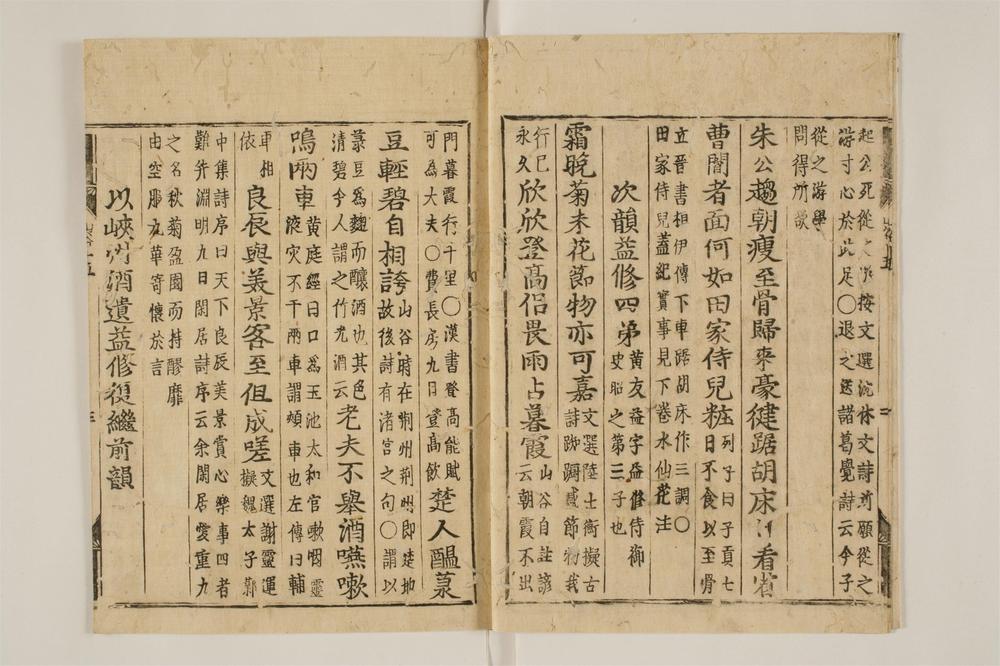 起公死從之游按文選沈休文詩所願從之
游寸心於此足〇退之送諸葛覺詩云今子
從之游學
問得所欲
朱公趨朝瘦至骨歸來豪健踞胡床行看省
曹闇者面何如田家侍兒粧列子曰子貢七
日不食以至骨
立晉書桓伊傳下車踞胡床作三調〇
田家侍兒蓋紀實事見下卷水仙花注
次韻益修四弟黃友益字益修侍御
史昭之第三子也
霜晚菊未花節物亦可嘉文選陸士衡擬古
詩踟躕感節物我
行已
永久欣欣登高侶畏雨占暮霞山谷自註諺
云朝霞不出
門暮霞行千里〇漢書登高能賦
可為大夫〇費長房九日登高飲楚人醖菉
豆輕碧自相誇山谷時在荆州荆州即楚地
故後詩有渚宮之句〇謂以
菉豆為麴而釀酒也其色
清碧今人謂之竹光酒云老夫不舉酒嚥嗽
鳴兩車黃庭經曰口爲玉池太和官嗽咽靈
液灾不干兩車謂頰車也左傳曰輔
車相
依良辰與美景客至但成嗟文選謝靈運
擬魏太子鄴
中集詩序曰天下良辰美景賞心樂事四者
難并淵明九日閑居詩序云余閑居愛重九
之名秋菊盈園而持醪靡
由空服九華寄懷於言
以峽州酒遺益修復繼前韻